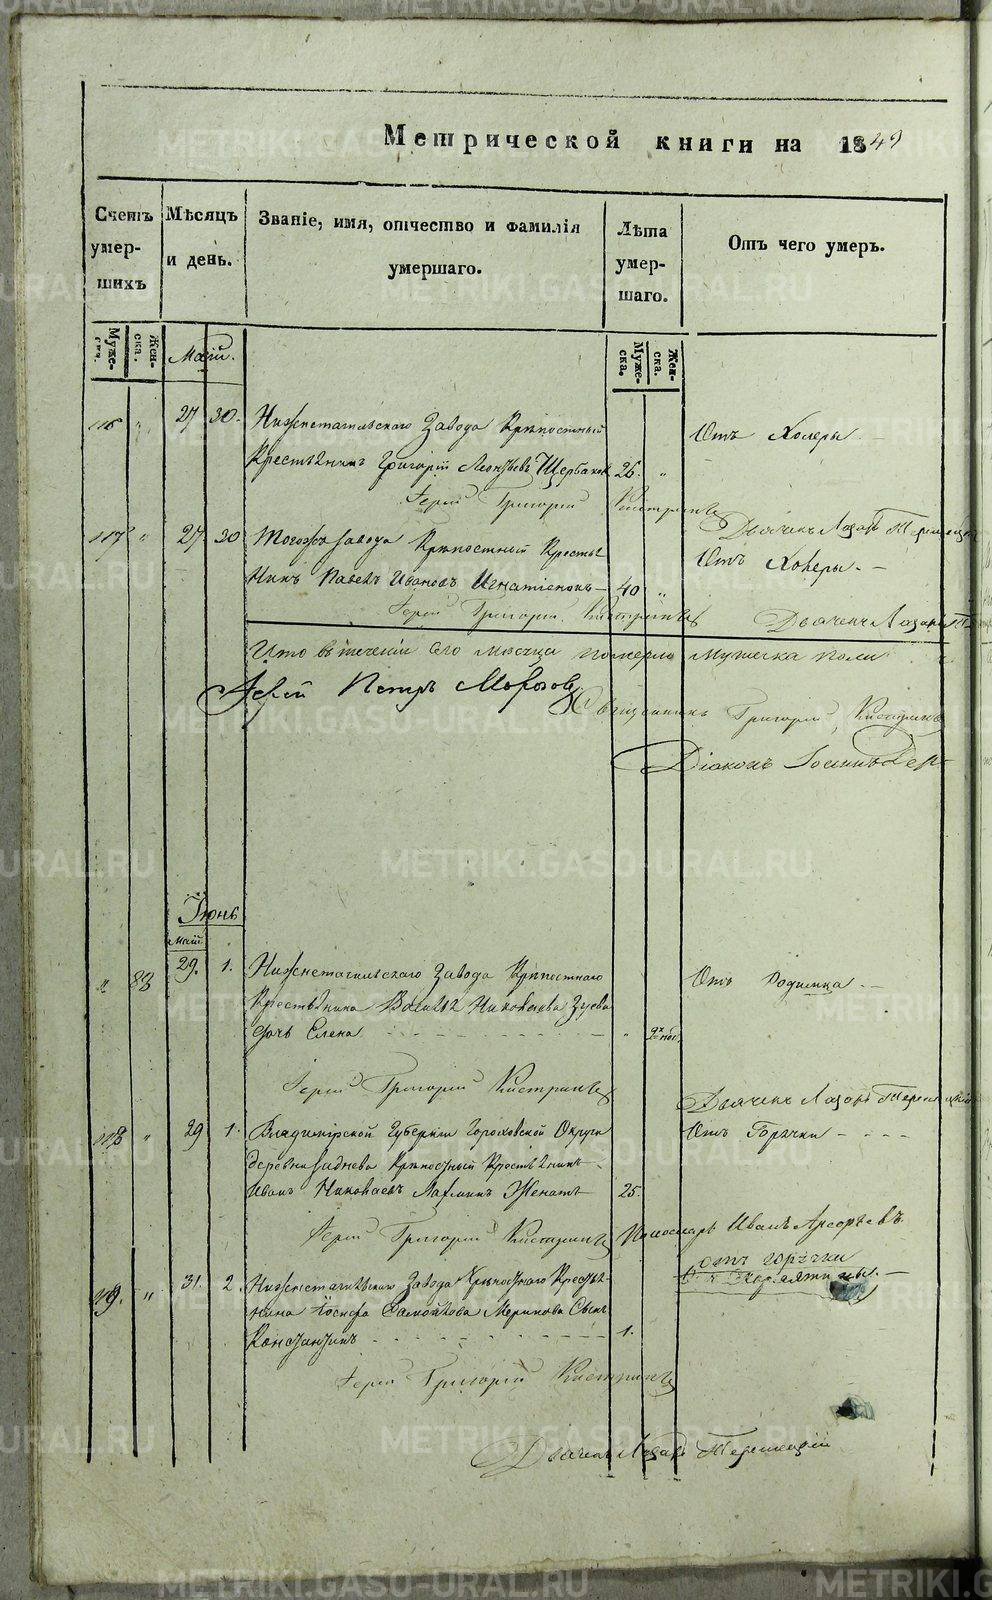 Метрической книги на 1849
Счетъ умер-шихъ
Мѣсяцъ и день.
Званіе, имя, отчество и фамилія умершаго.
Лѣта умер-шаго.
Отъ чего умеръ.
Муже-ска.
Жен-ска.
Май.
Муже-ска.
Жен-ска.
116 " 27 30. Нижнетагильскаго Завода Крѣпостный
Крестьянинъ Григорій Леонтьевъ Щербаковъ 26. " Отъ Холеры. —
Іерей Григорій
Дьячекъ Лазарь
117 " 27 30 Тогожъ завода Крѣпостный Крестья
нинъ Павелъ Ивановъ 40 " Отъ Холеры. —
Іерей Григорій
Дьячекъ Лазарь
Что въ теченіи сего мѣсяца померло мужеска пола
Іерей Петръ Морозовъ
Священникъ Григорій
Діаконъ Іоаннъ
Іюнь
май
" 83 29. 1. Нижнетагильскаго Завода Крѣпостнаго
Крестьянина Василья Николаева Зуева
дочь Елена " Отъ Родимца. —
Іерей Григорій
Дьячекъ Лазарь
118 " 29 1. Владимірской Губерніи Гороховской Округи
деревни Крѣпостный Крестьянинъ
Иванъ Николаевъ Женатъ 25. Отъ Горячки — — —
Іерей Григорій
Пономарь Иванъ Арефьевъ
119. " 31. 2. Нижнетагильскаго Завода Крѣпостнаго Крестья-
нина Іосифа Самойлова Меринова Сынъ
Константинъ 1. отъ горячки
Іерей Григорій
Дьячекъ Лазарь
METRIKI.GASO-URAL.RU